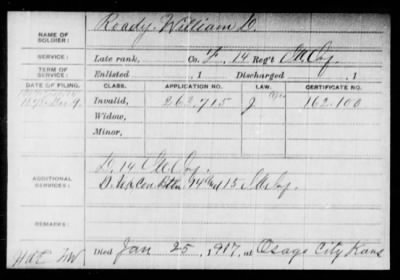 NAME OF SOLDIER: Roady, William D.
SERVICE: Late rank, Co. F, 14 Reg't Ill Cav
Enlisted , 1 Discharged , 1
DATE OF FILING. CLASS. APPLICATION NO. LAW. CERTIFICATE NO.
Invalid, 262.715 162.100
Widow,
Minor,
ADDITIONAL SERVICES: D. 14. Ill Cav.
REMARKS:
Died Jan 25, 1917, at Osage City Kans